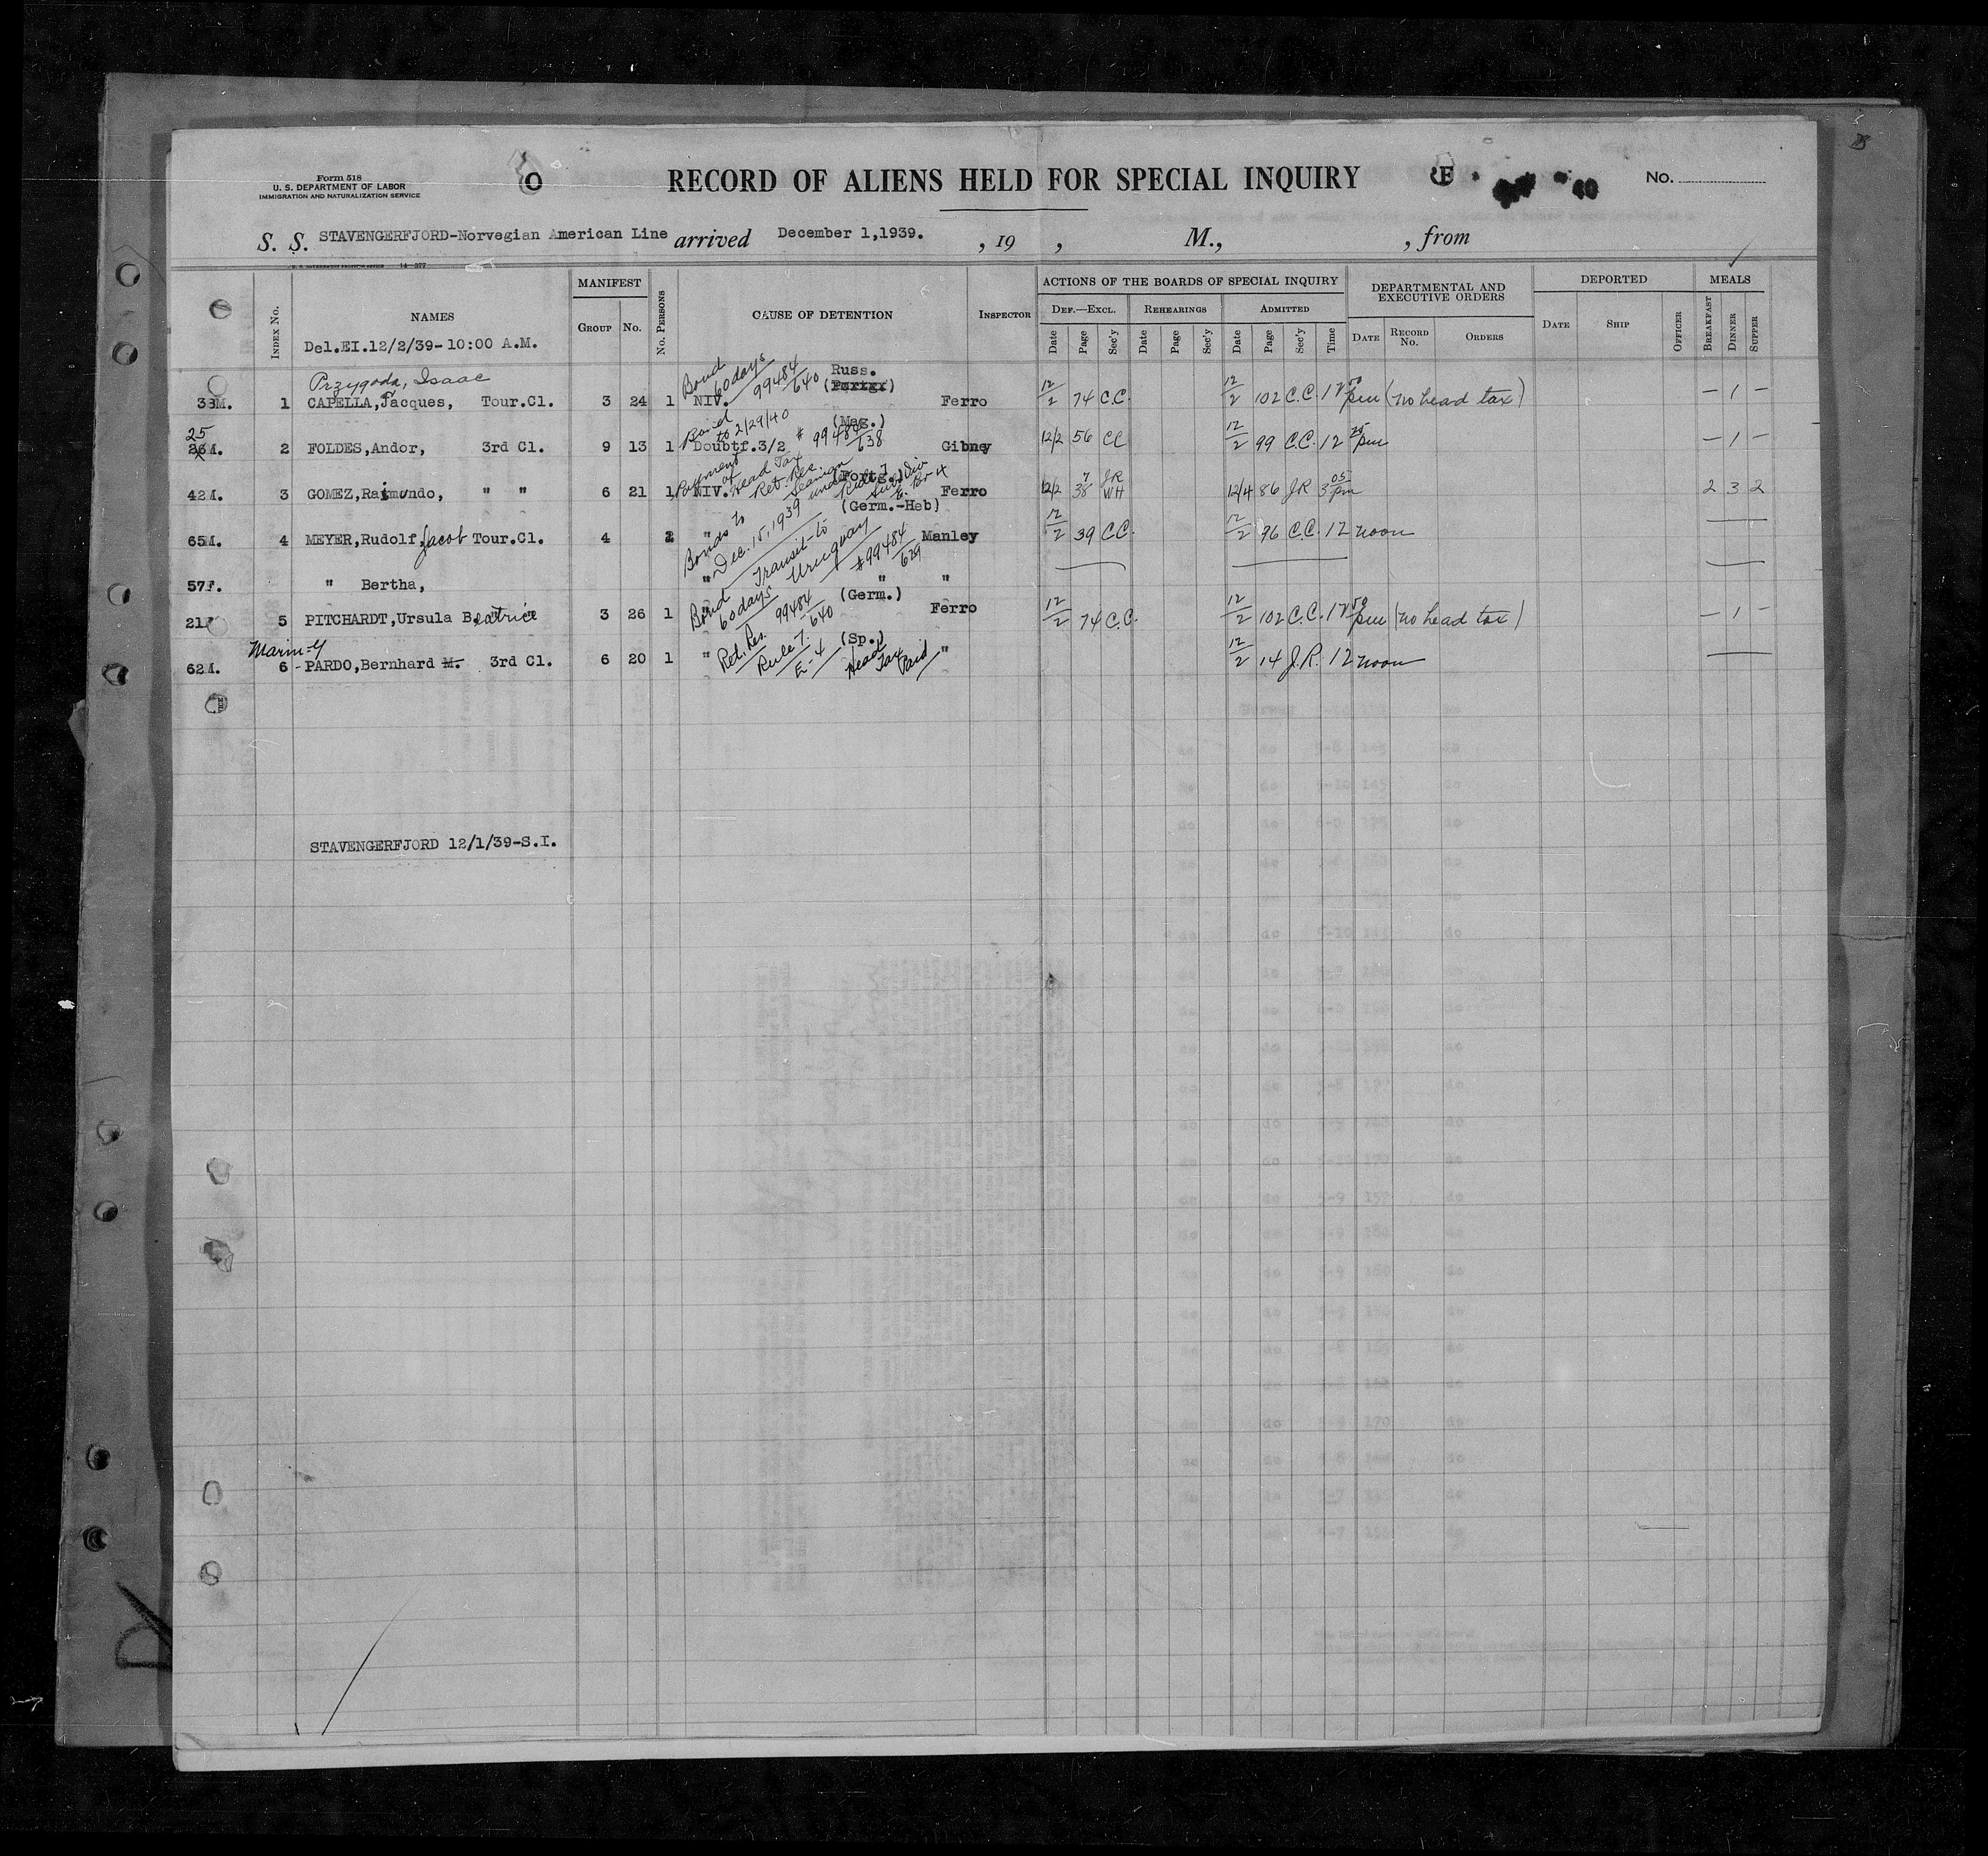 Form 518
U. S. DEPARTMENT OF LABOR
IMMIGRATION AND NATURALIZATION SERVICE
RECORD OF ALIENS HELD FOR SPECIAL INQUIRY
No.
S. S. STAVENGERFJORD-Norwegian American Line arrived December 1,1939. , 19 , M., , from
INDEX No.
NAMES
Del.EI.12/2/39-10:00 A.M.
MANIFEST
GROUP No.
No. PERSONS
CAUSE OF DETENTION
INSPECTOR
ACTIONS OF THE BOARDS OF SPECIAL INQUIRY
DEF.—EXCL. REHEARINGS ADMITTED
Date Page Sec'y Date Page Sec'y Date Page Sec'y Time
DEPARTMENTAL AND EXECUTIVE ORDERS
DATE RECORD No. ORDERS
DEPORTED
DATE SHIP OFFICER
MEALS
BREAKFAST DINNER SUPPER
Przygoda, Isaac
Bond 60 days 99484/640 Russ.
1 CAPELLA,Jacques, Tour.Cl. 3 24 1 NIV. Ferro 12/2 74 C.C. 12/2 102 C.C. 12 50 pm (no head tax) — 1 —
25
Bond to 2/29/40 # 99484/638 (Mag.)
2 FOLDES,Andor, 3rd Cl. 9 13 1 Doubtf.3/2 Gibney 12/2 56 CC 12/2 99 C.C. 12 25 pm — 1 —
Payment of Head Tax Ret. Res. (Portg.)
42M. 3 GOMEZ,Raimundo, " " 6 21 1 NIV. Ferro 12/2 7 38 JR WH 12/4 86 JR 3 05 pm 2 3 2
(Germ.-Heb)
65M. 4 MEYER,Rudolf, Jacob Tour.Cl. 4 2 " Manley 12/2 39 C.C. 12/2 96 C.C. 12 noon
Bonds to Dec. 15, 1939 Transit to Uruguay #99484/629
57F. " Bertha, " " "
Bond 60 days 99484/640 (Germ.)
21F 5 PITCHARDT,Ursula Beatrice 3 26 1 Ferro 12/2 74 C.C. 12/2 102 C.C. 12 50 pm (no head tax) — 1 —
Marin-Y
Ret. Res. Rule 7. E-4 (Sp.) Head Tax Paid
62M. 6 -PARDO,Bernhard M. 3rd Cl. 6 20 1 " " 12/2 14 J.R. 12 noon
STAVENGERFJORD 12/1/39-S.I.